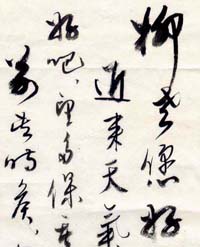 柳老您好
近来天氣
好吧，望多保重
時候，